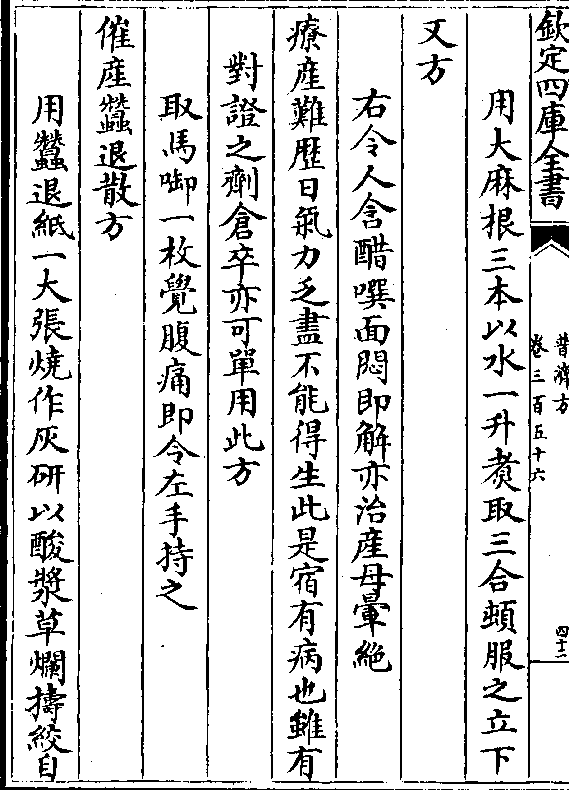 欽定四庫全書
普濟方
卷三百五十六
四十二
用大麻根三本以水一升煮取三合頓服之立下
又方
右令人含醋噀面悶即解亦治産母暈絶
療産難歴日氣力乏盡不能得生此是宿有病也雖有
對證之劑倉卒亦可單用此方
取馬啣一枚覺腹痛即令左手持之
催産蠶退散方
用蠶退紙一大張燒作灰研以酸漿草爛擣絞自